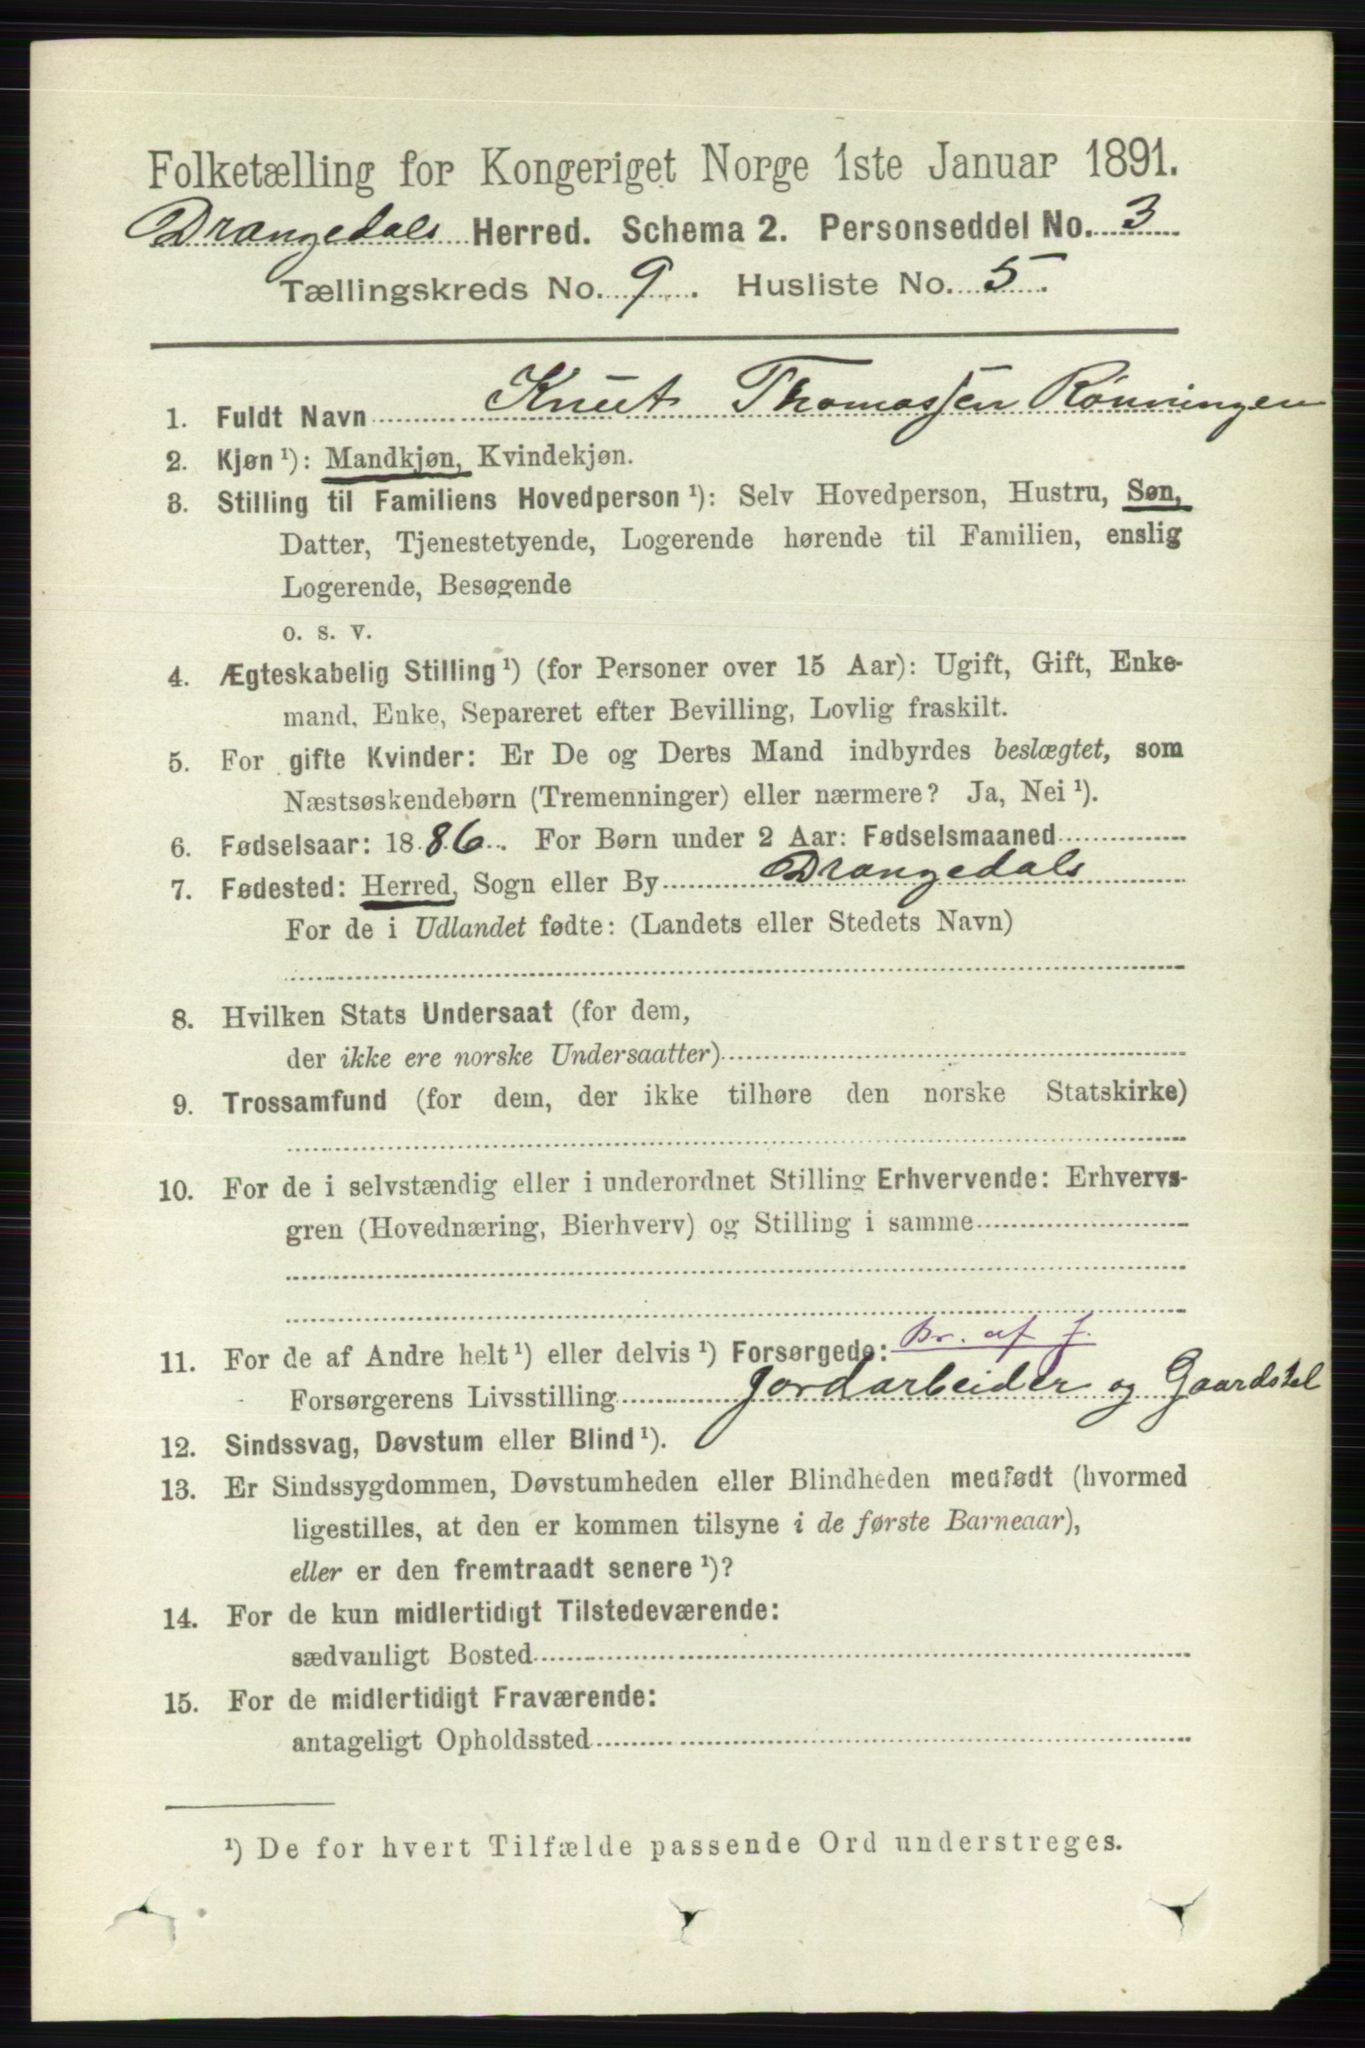 Folketælling for Kongeriget Norge 1ste Januar 1891.
Drangedals Herred. Schema 2. Personseddel No. 3
Tællingskreds No. 9. Husliste No. 5.
1. Fuldt Navn Knut Thomassen Rönningen
2. Kjøn ¹): Mandkjøn, Kvindekjøn.
3. Stilling til Familiens Hovedperson ¹): Selv Hovedperson, Hustru, Søn,
Datter, Tjenestetyende, Logerende hørende til Familien, enslig
Logerende, Besøgende
o. s. v.
4. Ægteskabelig Stilling ¹) (for Personer over 15 Aar): Ugift, Gift, Enke-
mand, Enke, Separeret efter Bevilling, Lovlig fraskilt.
5. For gifte Kvinder: Er De og Deres Mand indbyrdes beslægtet, som
Næstsøskendebørn (Tremenninger) eller nærmere? Ja, Nei ¹).
6. Fødselsaar: 1886. For Børn under 2 Aar: Fødselsmaaned
7. Fødested: Herred, Sogn eller By Drangedals
For de i Udlandet fødte: (Landets eller Stedets Navn)
8. Hvilken Stats Undersaat (for dem,
der ikke ere norske Undersaatter)
9. Trossamfund (for dem, der ikke tilhøre den norske Statskirke)
10. For de i selvstændig eller i underordnet Stilling Erhvervende: Erhvervs-
gren (Hovednæring, Bierhverv) og Stilling i samme
11. For de af Andre helt ¹) eller delvis ¹) Forsørgede: br. af f.
Forsørgerens Livsstilling Jordarbeider og Gaardstel
12. Sindssvag, Døvstum eller Blind ¹).
13. Er Sindssygdommen, Døvstumheden eller Blindheden medfødt (hvormed
ligestilles, at den er kommen tilsyne i de første Barneaar),
eller er den fremtraadt senere ¹)?
14. For de kun midlertidigt Tilstedeværende:
sædvanligt Bosted
15. For de midlertidigt Fraværende:
antageligt Opholdssted
¹) De for hvert Tilfælde passende Ord understreges.